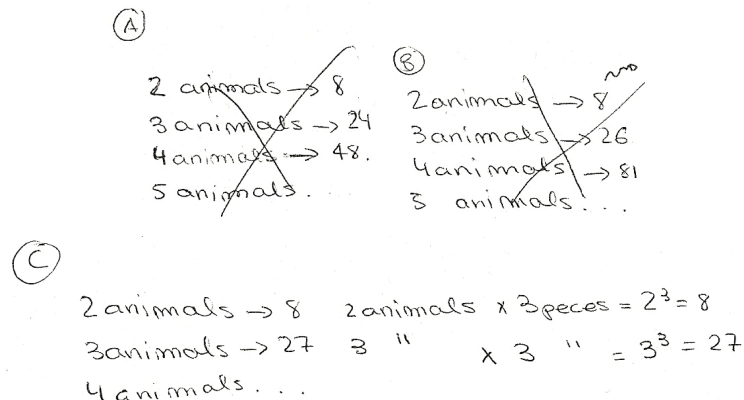 A
2 animals → 8
3 animals → 24
4 animals → 48.
5 animals. . .
B
no
2 animals → 8
3 animals → 26
4 animals → 81
5 animals. . .
C
2 animals → 8 2 animals x 3 peces = 2³ = 8
3 animals → 27 3 " x 3 " = 3³ = 27
4 animals. . .